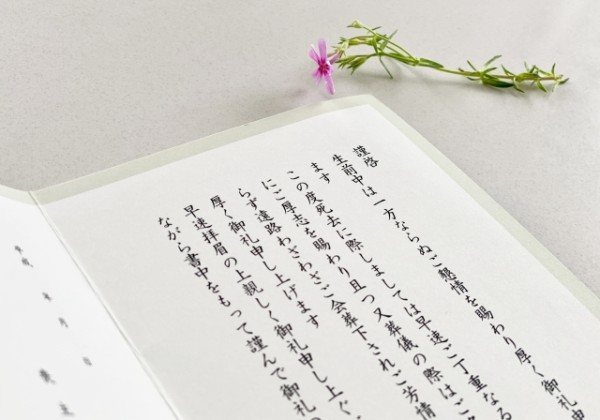 謹啓
生前中は一方ならぬご懇情を賜わり厚く御礼申
ます
この度死去に際しましては早速ご丁重なる
にご厚志を賜わり且つ又葬儀の際はご
らず遠路わざわざご会葬下されご芳情
厚く御礼申し上げます
早速拝眉の上親しく御礼申し上ぐ
ながら書中をもって謹んで御礼
年 月 日
喪主